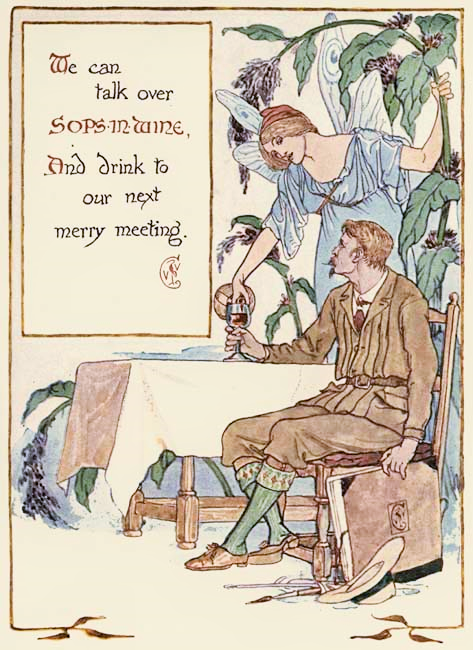 We can
talk over
SOPS·IN·WINE,
And drink to
our next
merry meeting.